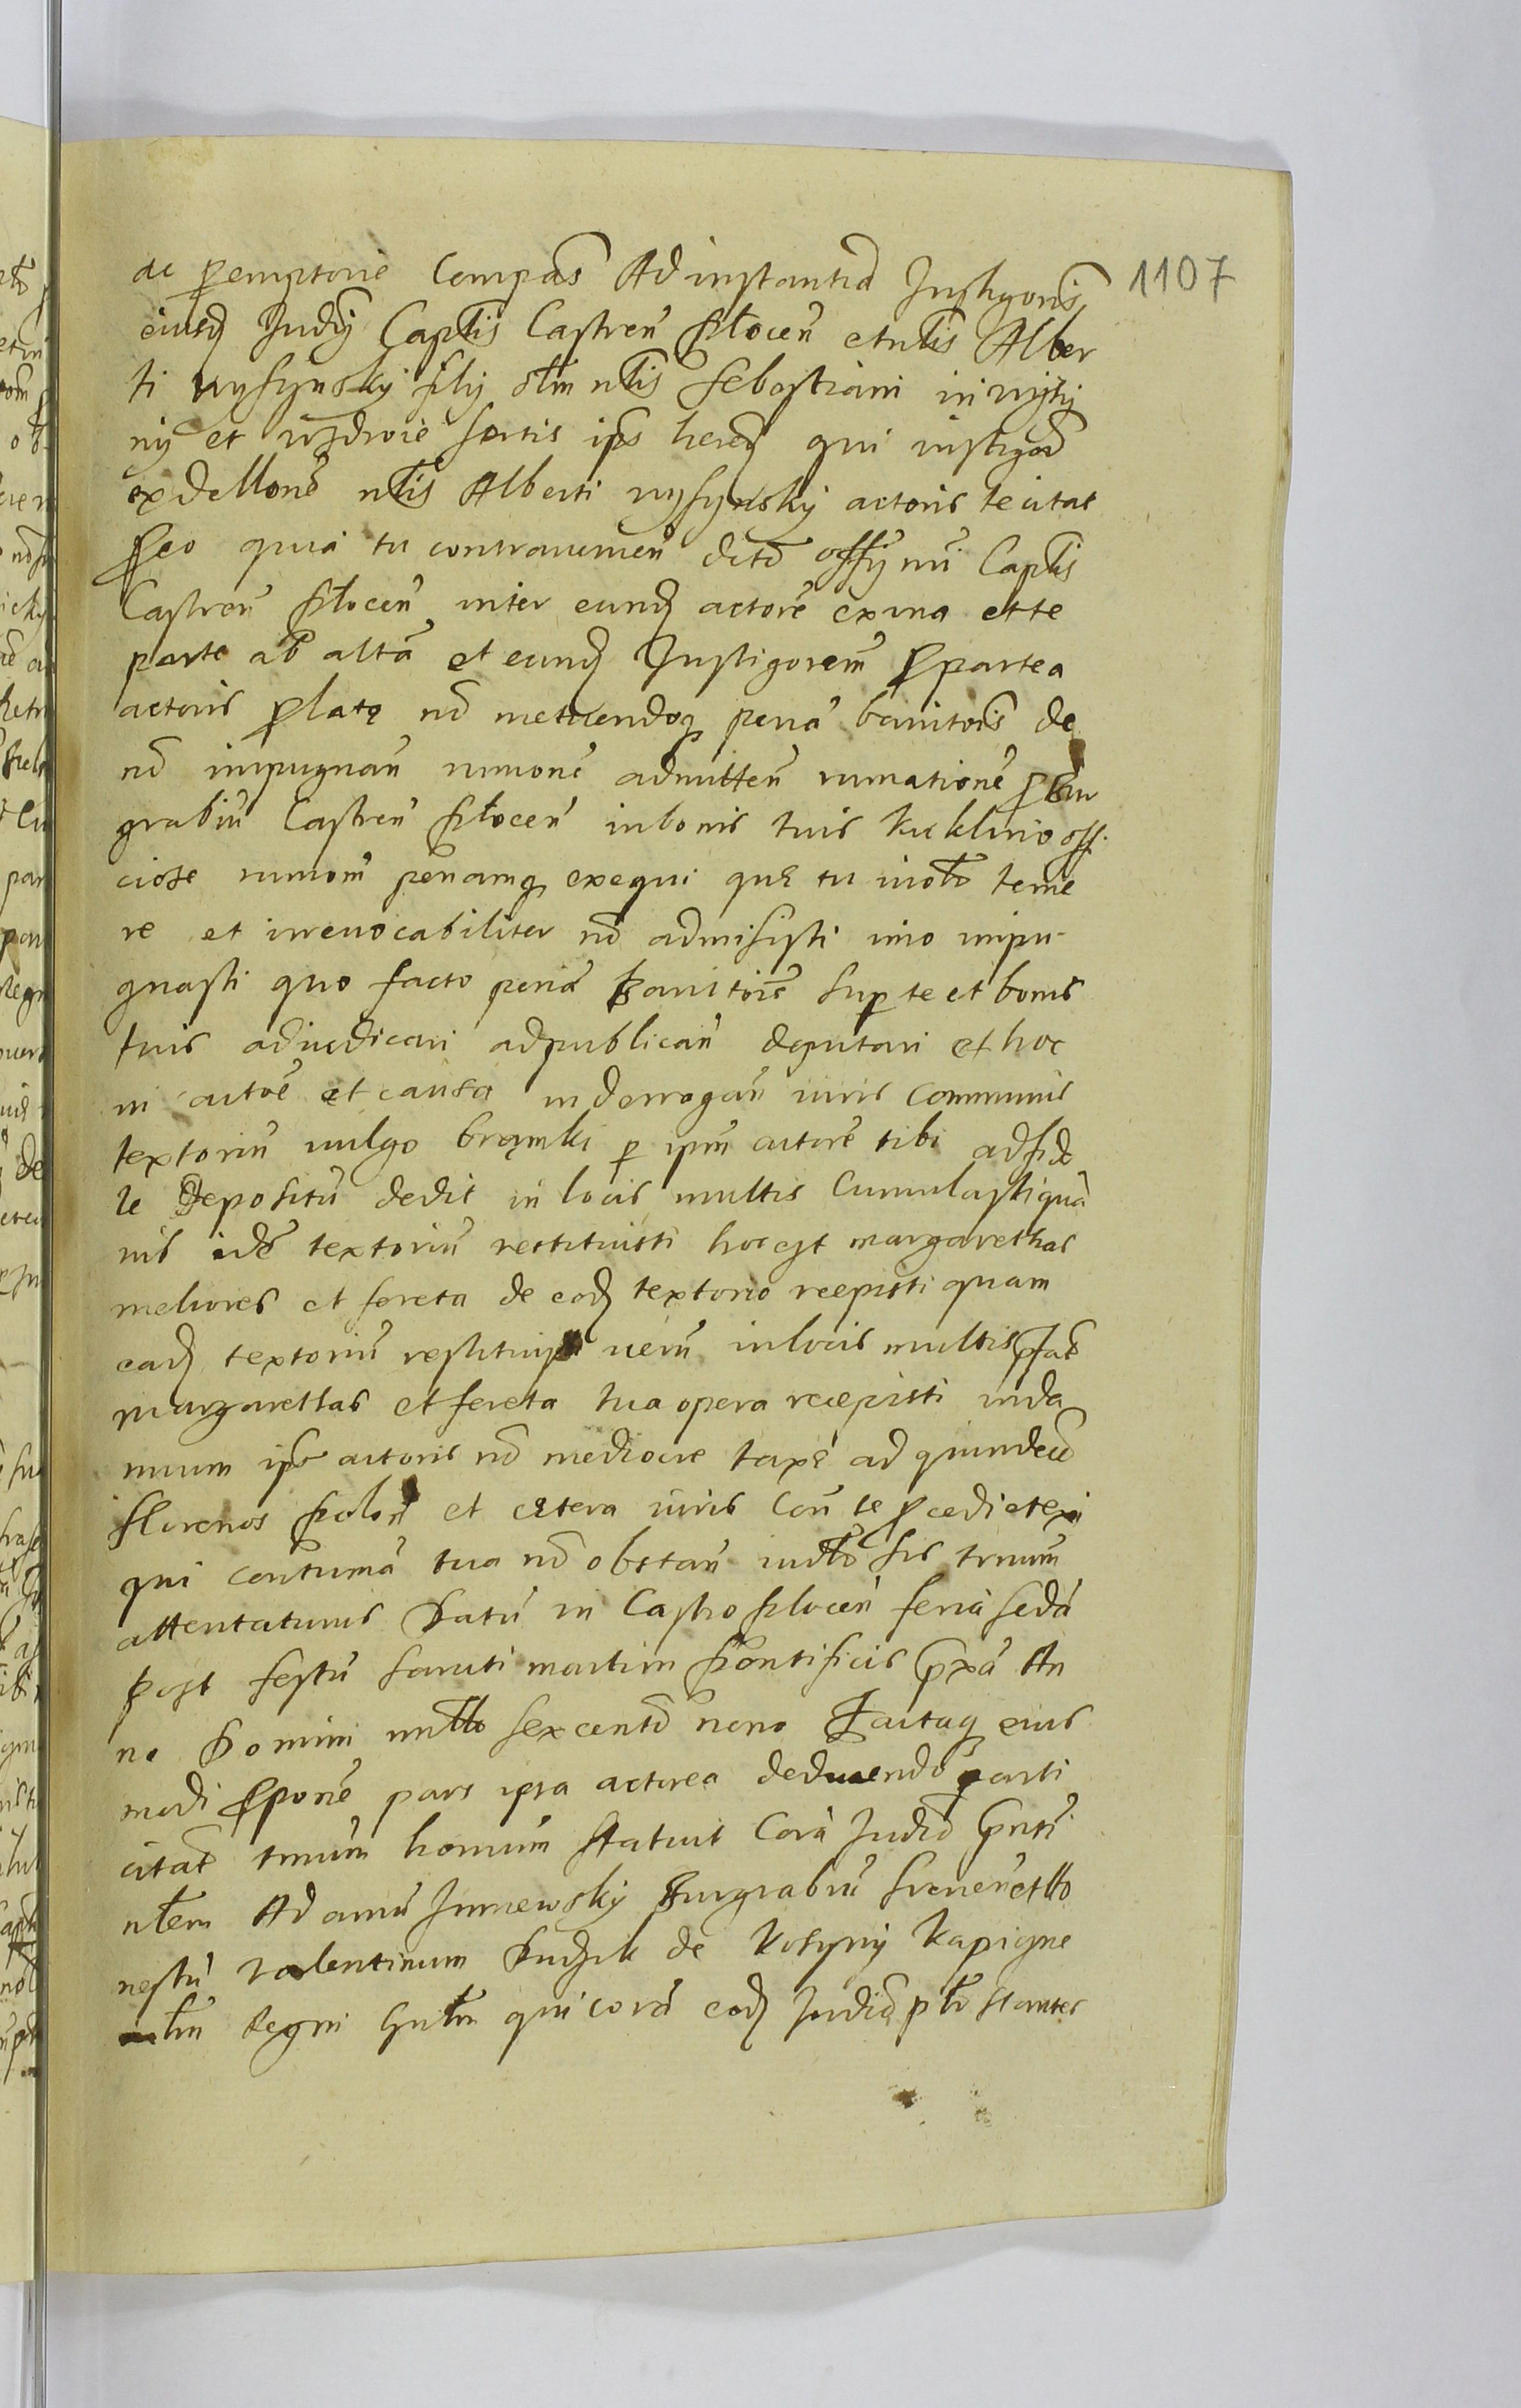 ac peremptorie Compas Ad instantia Instigoris 1107
eiusd Judÿ Captlis Castren Plocen et nblis Alber
ti wysynsky filÿ olim nblis Sebastiani in wysy
nÿ et uzdroie sortis ips hered qui instigor
ex dellone nblis Alberti wysynsky actoris te citat
Pro eo quia tu contravenien dcto offÿ nri Captlis
Castren Plocen inter eund actore ex una et te
parte ab alta et eund Instigorem pro parte a
actoris plato no metuendoq pena banitonis de
no impugnan rumone admitten rumatione p bur
grabiu Castren Plocen in bonis tuis Kuklino offi
ciose rumom penamq exequi quę tu iudto teme
re et irrevocabiliter no admisisti imo impu-
gnasti quo facto pena banitois sup te et bonis
tuis adiudicari ad publican deputari et hoc
in actoe et causa in derrogan iuris communis
textoriu vulgo bramki p ipm actore tibi ad fide
le Depositu dedit in locis multis Cumulasti qua
vis ide textoriu restituisti hoc est margarethas
meliores et fereta de eod textorio recepisti quam
ead textoriu restituisti veru in locis multis ptas
margarettas et fereta tua opera recepisti in da
mnum ips actoris no mediocre taxę ad quindeci
florenos polon et cętera iuris Con te procedi et exi
qui contuma tua no obstan iudto sis trnum
attentaturus Datu in Castro Plocen feria seda
post festu Sancti martini Pontificis pxa An
no Domini millo sexcento nono Factaq eius
modi ppone pars ipsa actorea deducendo parti
citate trnum homum statuit Cora Judio pnti
nblem Adamu Jurzewsky Burgrabiu Srenen et ho
nestu valentinum Dudzik de Kosyny Kapigne
mlm Regni gnlm qui cora eod Judio pto stantes